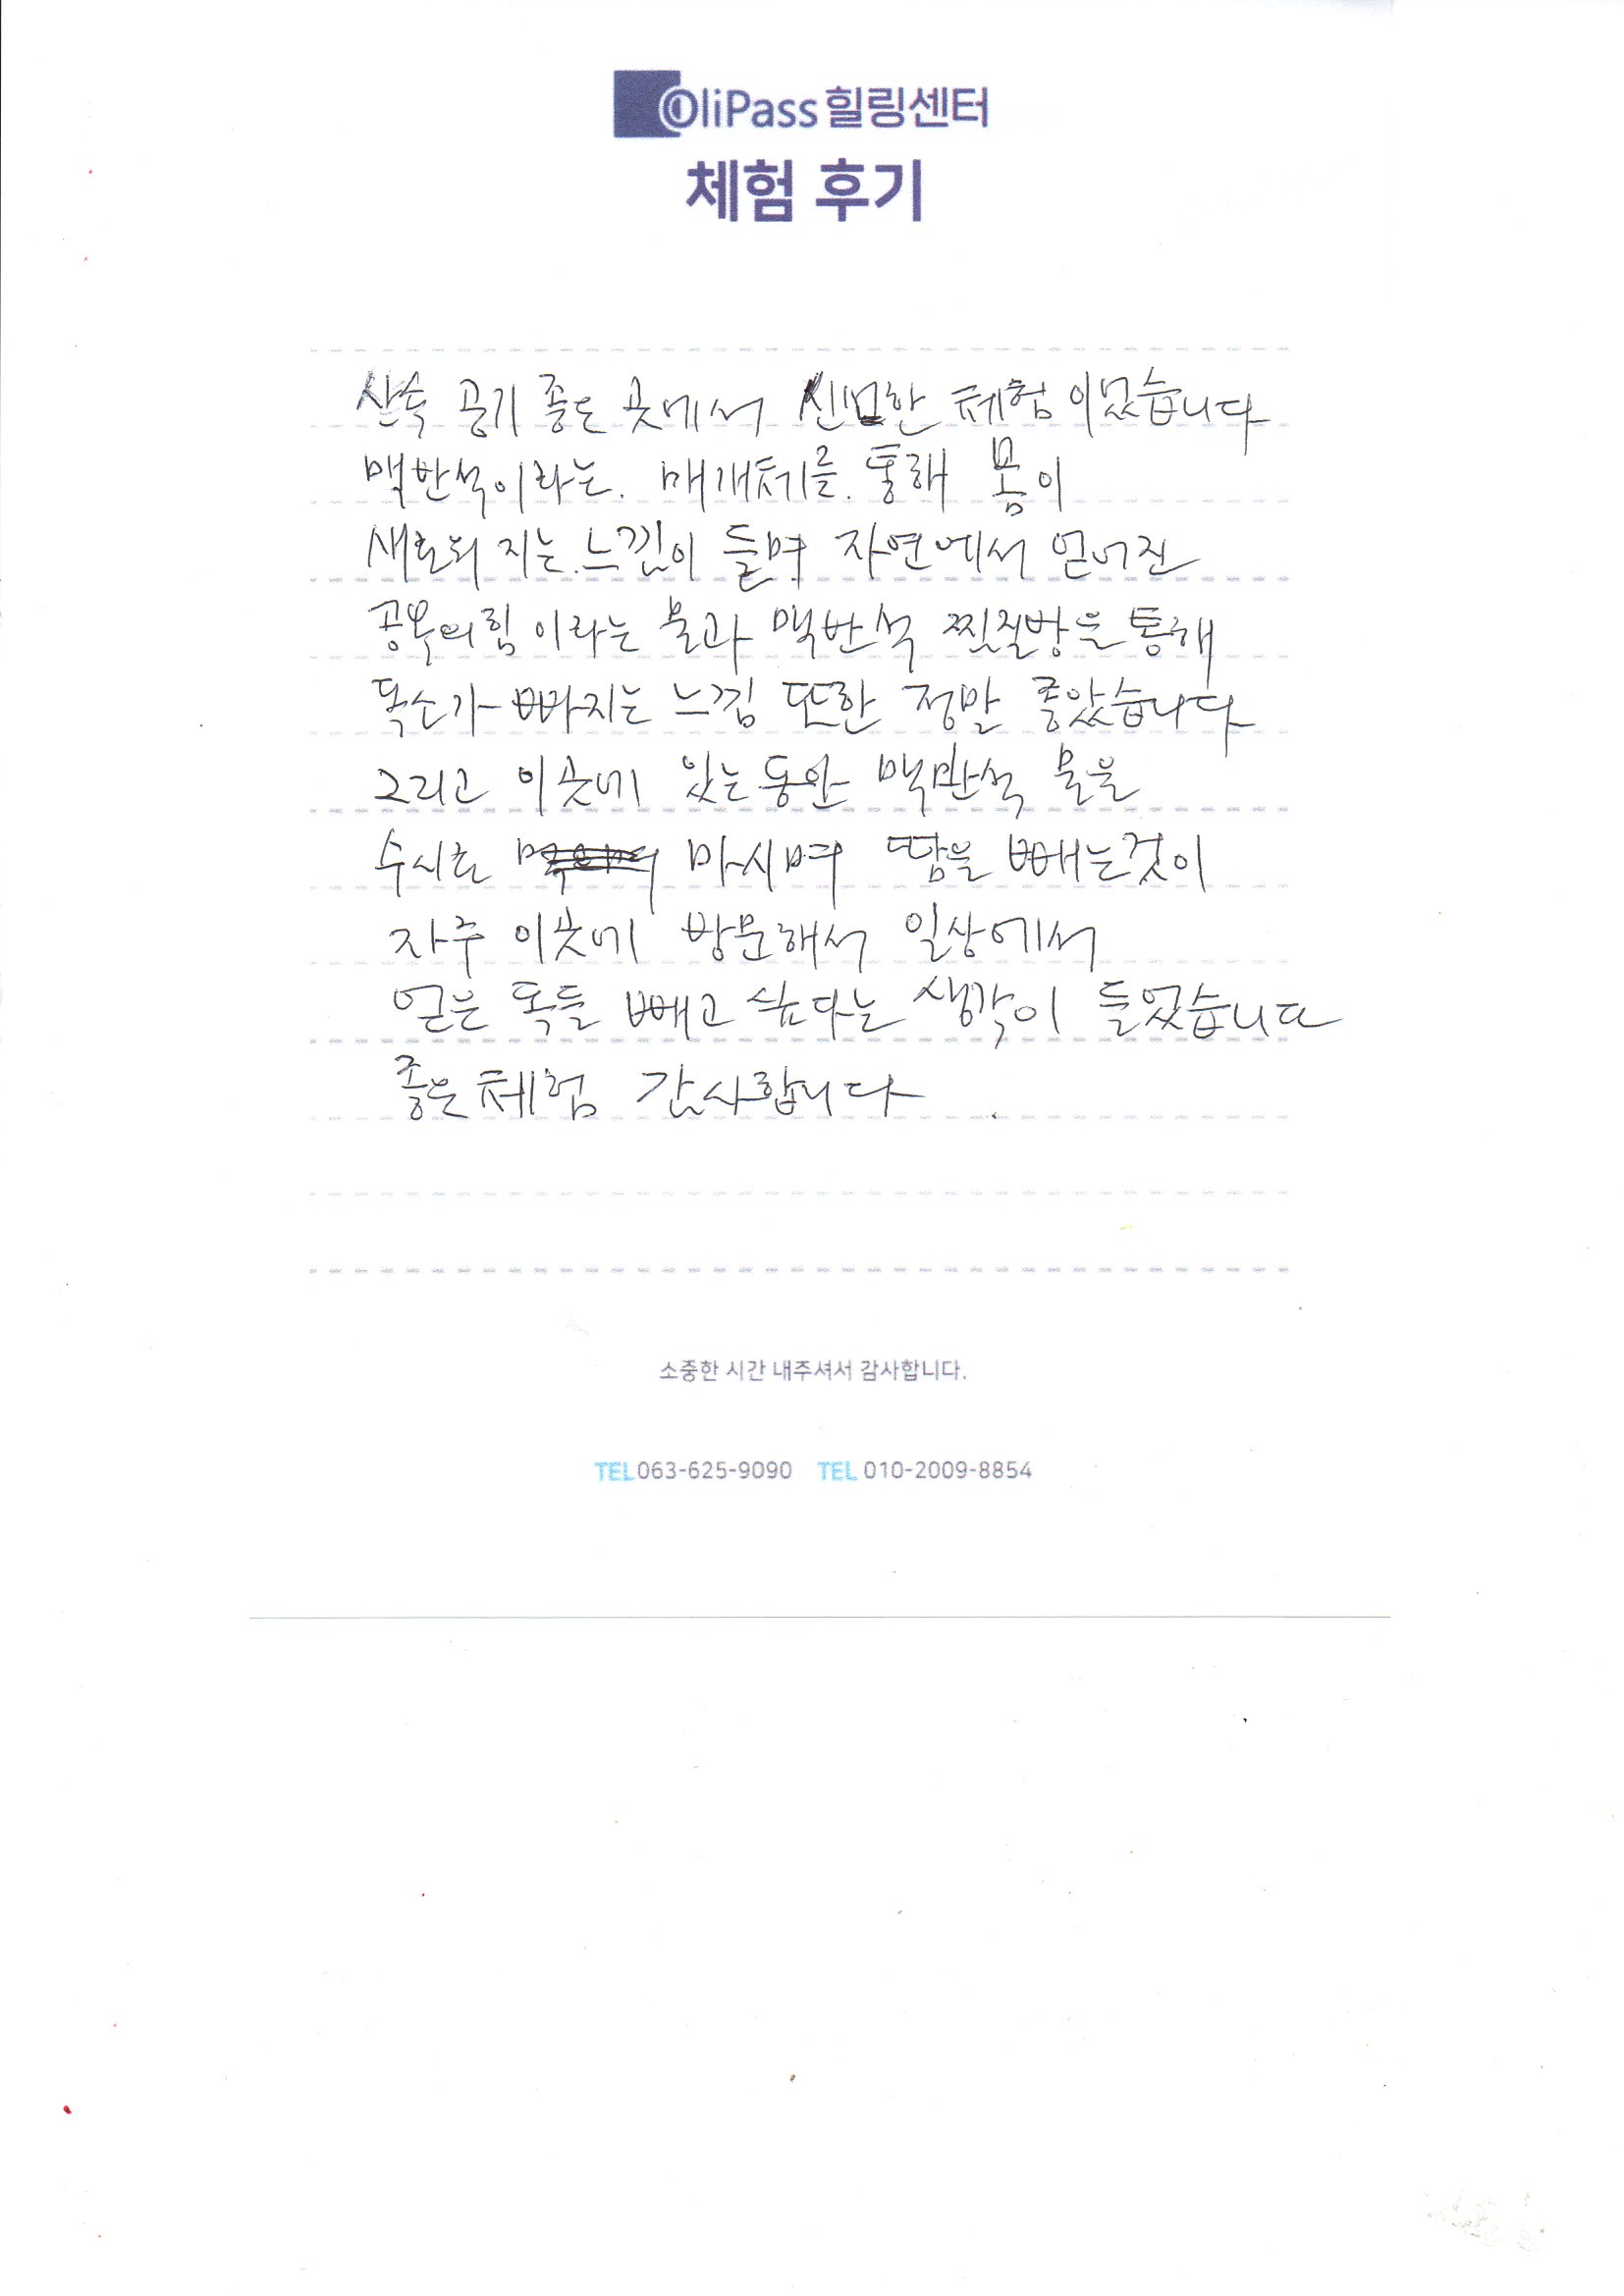 OliPass 힐링센터
체험 후기
산속 공기 좋은 곳에서 신비한 체험이었습니다
맥반석이라는. 매개체를. 통해 몸이
새로워 지는. 느낌이 들며 자연에서 얻어진
공복의힘 이라는 물과 맥반석 찜질방을 통해
독소가 빠지는 느낌 또한 정말 좋았습니다
그리고 이곳에 있는동안 맥반석 물을
수시로 마시며 땀을 빼는것이
자주 이곳에 방문해서 일상에서
얻은 독들 빼고 싶다는 생각이 들었습니다
좋은체험 감사합니다.
소중한 시간 내주셔서 감사합니다.
TEL 063-625-9090 TEL 010-2009-8854